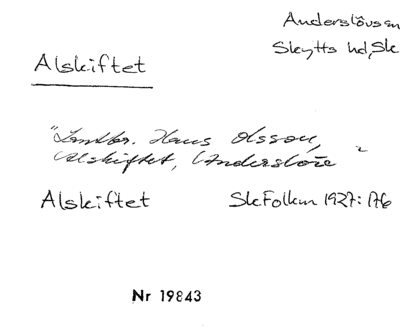 Anderslövs sn
Skytts hd, Sk
Alskiftet
"Lantbr. Hans Olsson,
Alskiftet, Anderslöv"
Alskiftet Sk Folkm 1927: 176
Nr 19843